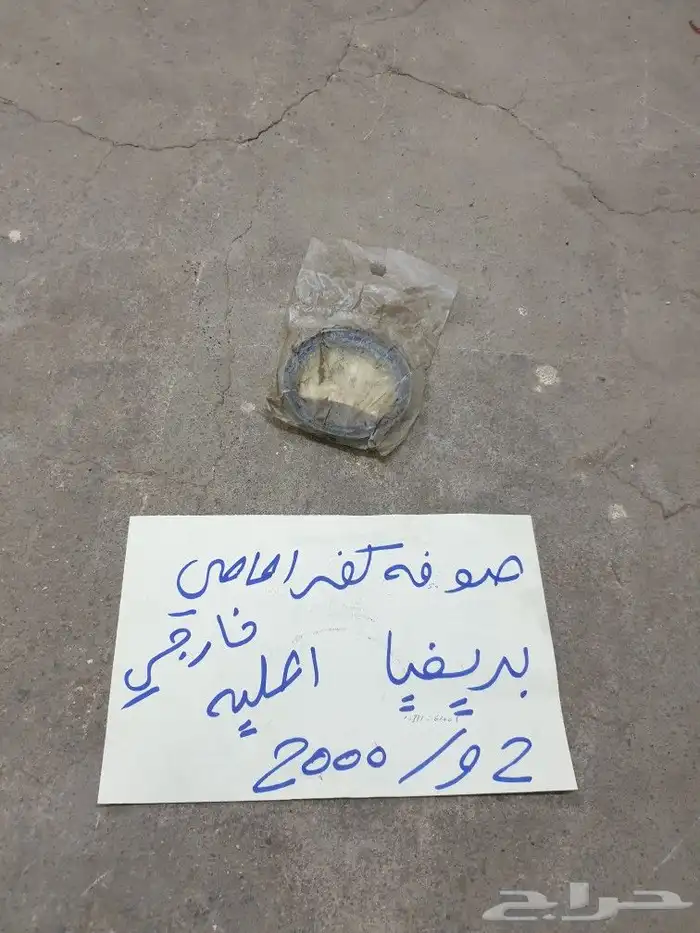 صوفه كفر امامي
خارجي
بريفيا اصليه
2 و / 2000
حراج